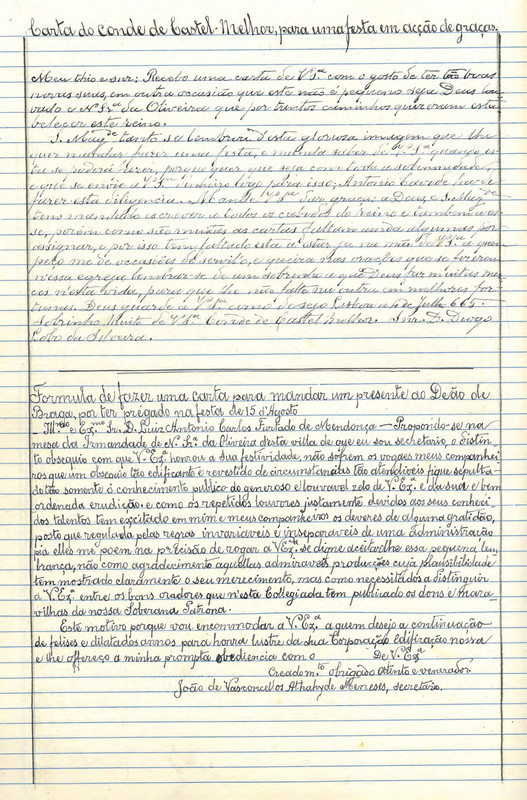 Carta do conde de Castel-Melhor, para uma festa em acção de graças.
Meu thio e snr: Recebo uma carta de V.Sª com o gosto de ter tão boas
novas suas, em outra occasião que esta não é pequeno seja Deus lou-
vado e N. Srª da Oliveira que por tantos caminhos quizeram esta-
belecer este reino.
S. Magde tanto se lembra d'esta gloriosa imagem que lhe
quer mandar fazer uma festa, e manda saber de V. Sª quando es-
ta se poderá fazer, porque quer que seja com toda a solemnidade,
e que se envie a V. Sª dinheiro logo para isso, Antonio
fazer esta diligencia. graças a Deus, S. Magde
tem mandado escrever a todos os cabidos do reino e tambem a es-
se, porém como são muitas as cartas faltam ainda algumas por
assignar, e por isso tem faltado esta a estar já na mão de V. Sª a quem
peço me dê occasiões de servil-o, e queira nas orações que se fizerem
n'essa egreja lembrar-se de um sobrinho a quem Deus faz muitas mer-
cês n'esta vida, para que lhe não falte na outra com melhores for-
tunas. Deus guarde a V. Sª como desejo Lisboa de Julho 665.
Sobrinho muito de V. Sª Conde de Castel Melhor. Snr. D. Diogo
Lobo da Silveira.
Formula de fazer uma carta para mandar um presente ao Deão de
Braga, por ter prégado na festa de 15 d'Agosto
— Illmo e Exmo Sr. D. Luiz Antonio Carlos Furtado de Mendonça — Propondo-se na
mesa da Irmandade de N. Srª da Oliveira d'esta villa de que eu sou secretario, o distin-
to obsequio com que V. Exª honrou a sua festividade, não sofrem os vogaes meus companhei-
ros que um obsequio tão edificante e revestido de circumstancias tão attendiveis fique sepulta-
do tão somente ó conhecimento publico do generoso e louvavel zelo de V. Exª. e da sua e bem
ordenada erudição e como os repetidos louvores justamente devidos aos seus conheci-
dos talentos tem excitado em mim e meus companheiros os deveres de alguma gratidão,
posto que regulada pelas regras invariaveis e inseparaveis de uma administração
pia elles me poem na precisão de rogar a V. Exª. se digne aceitar-lhe essa pequena lem-
brança, não como agradecimento aquellas admiraveis producções cuja plausibilidade
tem mostrado claramente o seu merecimento, mas como necessitados a distinguir
a V. Exª entre os bons oradores que n'esta Collegiada tem publicado os dons e mara-
vilhas da nossa Soberana Patrona.
Este motivo porque vou encommodar a V. Exª a quem desejo a continuação
de felises e dilatados annos para honra lustre da sua Corporação Edificação nossa
e lhe offereço a minha prompta obediencia com o De V. Exª
Creado mto obrigado attento e venerador
João de Vasconcellos Athahyde Meneses, secretario.